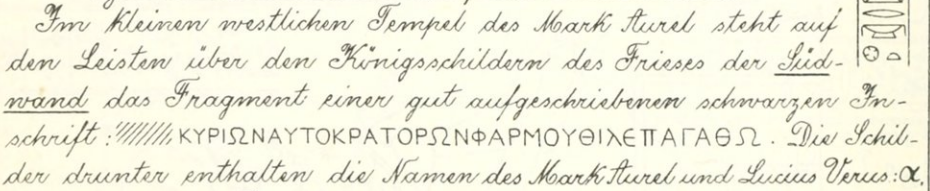 Im kleinen westlichen Tempel des Mark Aurel steht auf
den Leisten über den Königsschildern des Frieses der Süd-
wand das Fragment einer gut aufgeschriebenen schwarzen In-
schrift: ΚΥΡΙΩΝΑΥΤΟΚΡΑΤΟΡΩΝΦΑΡΜΟΥΘΙΛΕΠΑΓΑΘΩ. Die Schil-
der drunter enthalten die Namen des Mark Aurel und Lucius Verus: α.